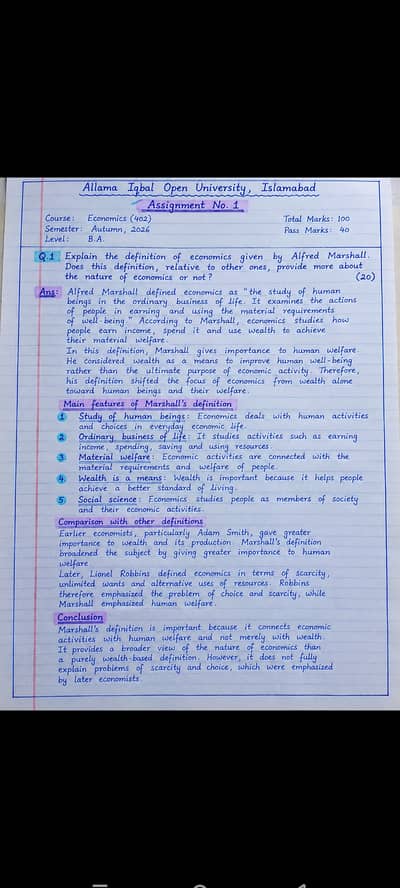 Allama Iqbal Open University, Islamabad
Assignment No. 1
Course: Economics (402) Total Marks: 100
Semester: Autumn, 2026 Pass Marks: 40
Level: B.A.
Q.1 Explain the definition of economics given by Alfred Marshall.
Does this definition, relative to other ones, provide more about
the nature of economics or not? (20)
Ans: Alfred Marshall defined economics as "the study of human
beings in the ordinary business of life. It examines the actions
of people in earning and using the material requirements
of well-being." According to Marshall, economics studies how
people earn income, spend it and use wealth to achieve
their material welfare.
In this definition, Marshall gives importance to human welfare.
He considered wealth as a means to improve human well-being
rather than the ultimate purpose of economic activity. Therefore,
his definition shifted the focus of economics from wealth alone
toward human beings and their welfare.
Main features of Marshall's definition
1 Study of human beings: Economics deals with human activities
and choices in everyday economic life.
2 Ordinary business of life: It studies activities such as earning
income, spending, saving and using resources.
3 Material welfare: Economic activities are connected with the
material requirements and welfare of people.
4 Wealth is a means: Wealth is important because it helps people
achieve a better standard of living.
5 Social science: Economics studies people as members of society
and their economic activities.
Comparison with other definitions
Earlier economists, particularly Adam Smith, gave greater
importance to wealth and its production. Marshall's definition
broadened the subject by giving greater importance to human
welfare.
Later, Lionel Robbins defined economics in terms of scarcity,
unlimited wants and alternative uses of resources. Robbins
therefore emphasized the problem of choice and scarcity, while
Marshall emphasized human welfare.
Conclusion
Marshall's definition is important because it connects economic
activities with human welfare and not merely with wealth.
It provides a broader view of the nature of economics than
a purely wealth-based definition. However, it does not fully
explain problems of scarcity and choice, which were emphasized
by later economists.